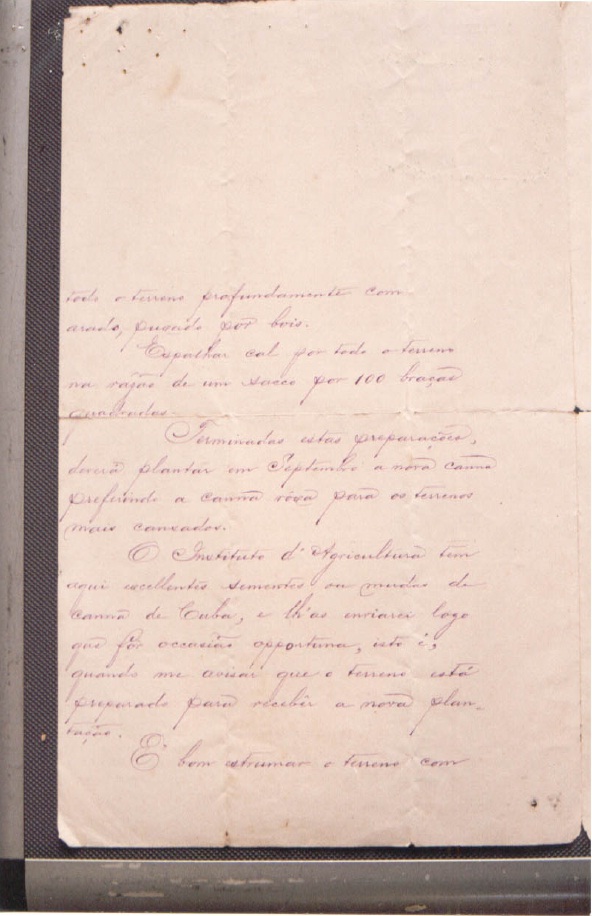 todo o terreno profundamente com
arado, puxado por bois.
Espalhar cal por todo o terreno
na razão de um sacco por 100 braças
quadradas.
Terminadas estas preparações,
deverá plantar em Septembro a nova canna
preferindo a canna rôxa para os terrenos
mais cansados.
O Instituto d'Agricultura tem
aqui excellentes sementes ou mudas de
canna de Cuba, e lh'as enviarei logo
que fôr occasião opportuna, isto é,
quando me avisar que o terreno está
preparado para receber a nova plan-
tação.
E' bom estrumar o terreno com